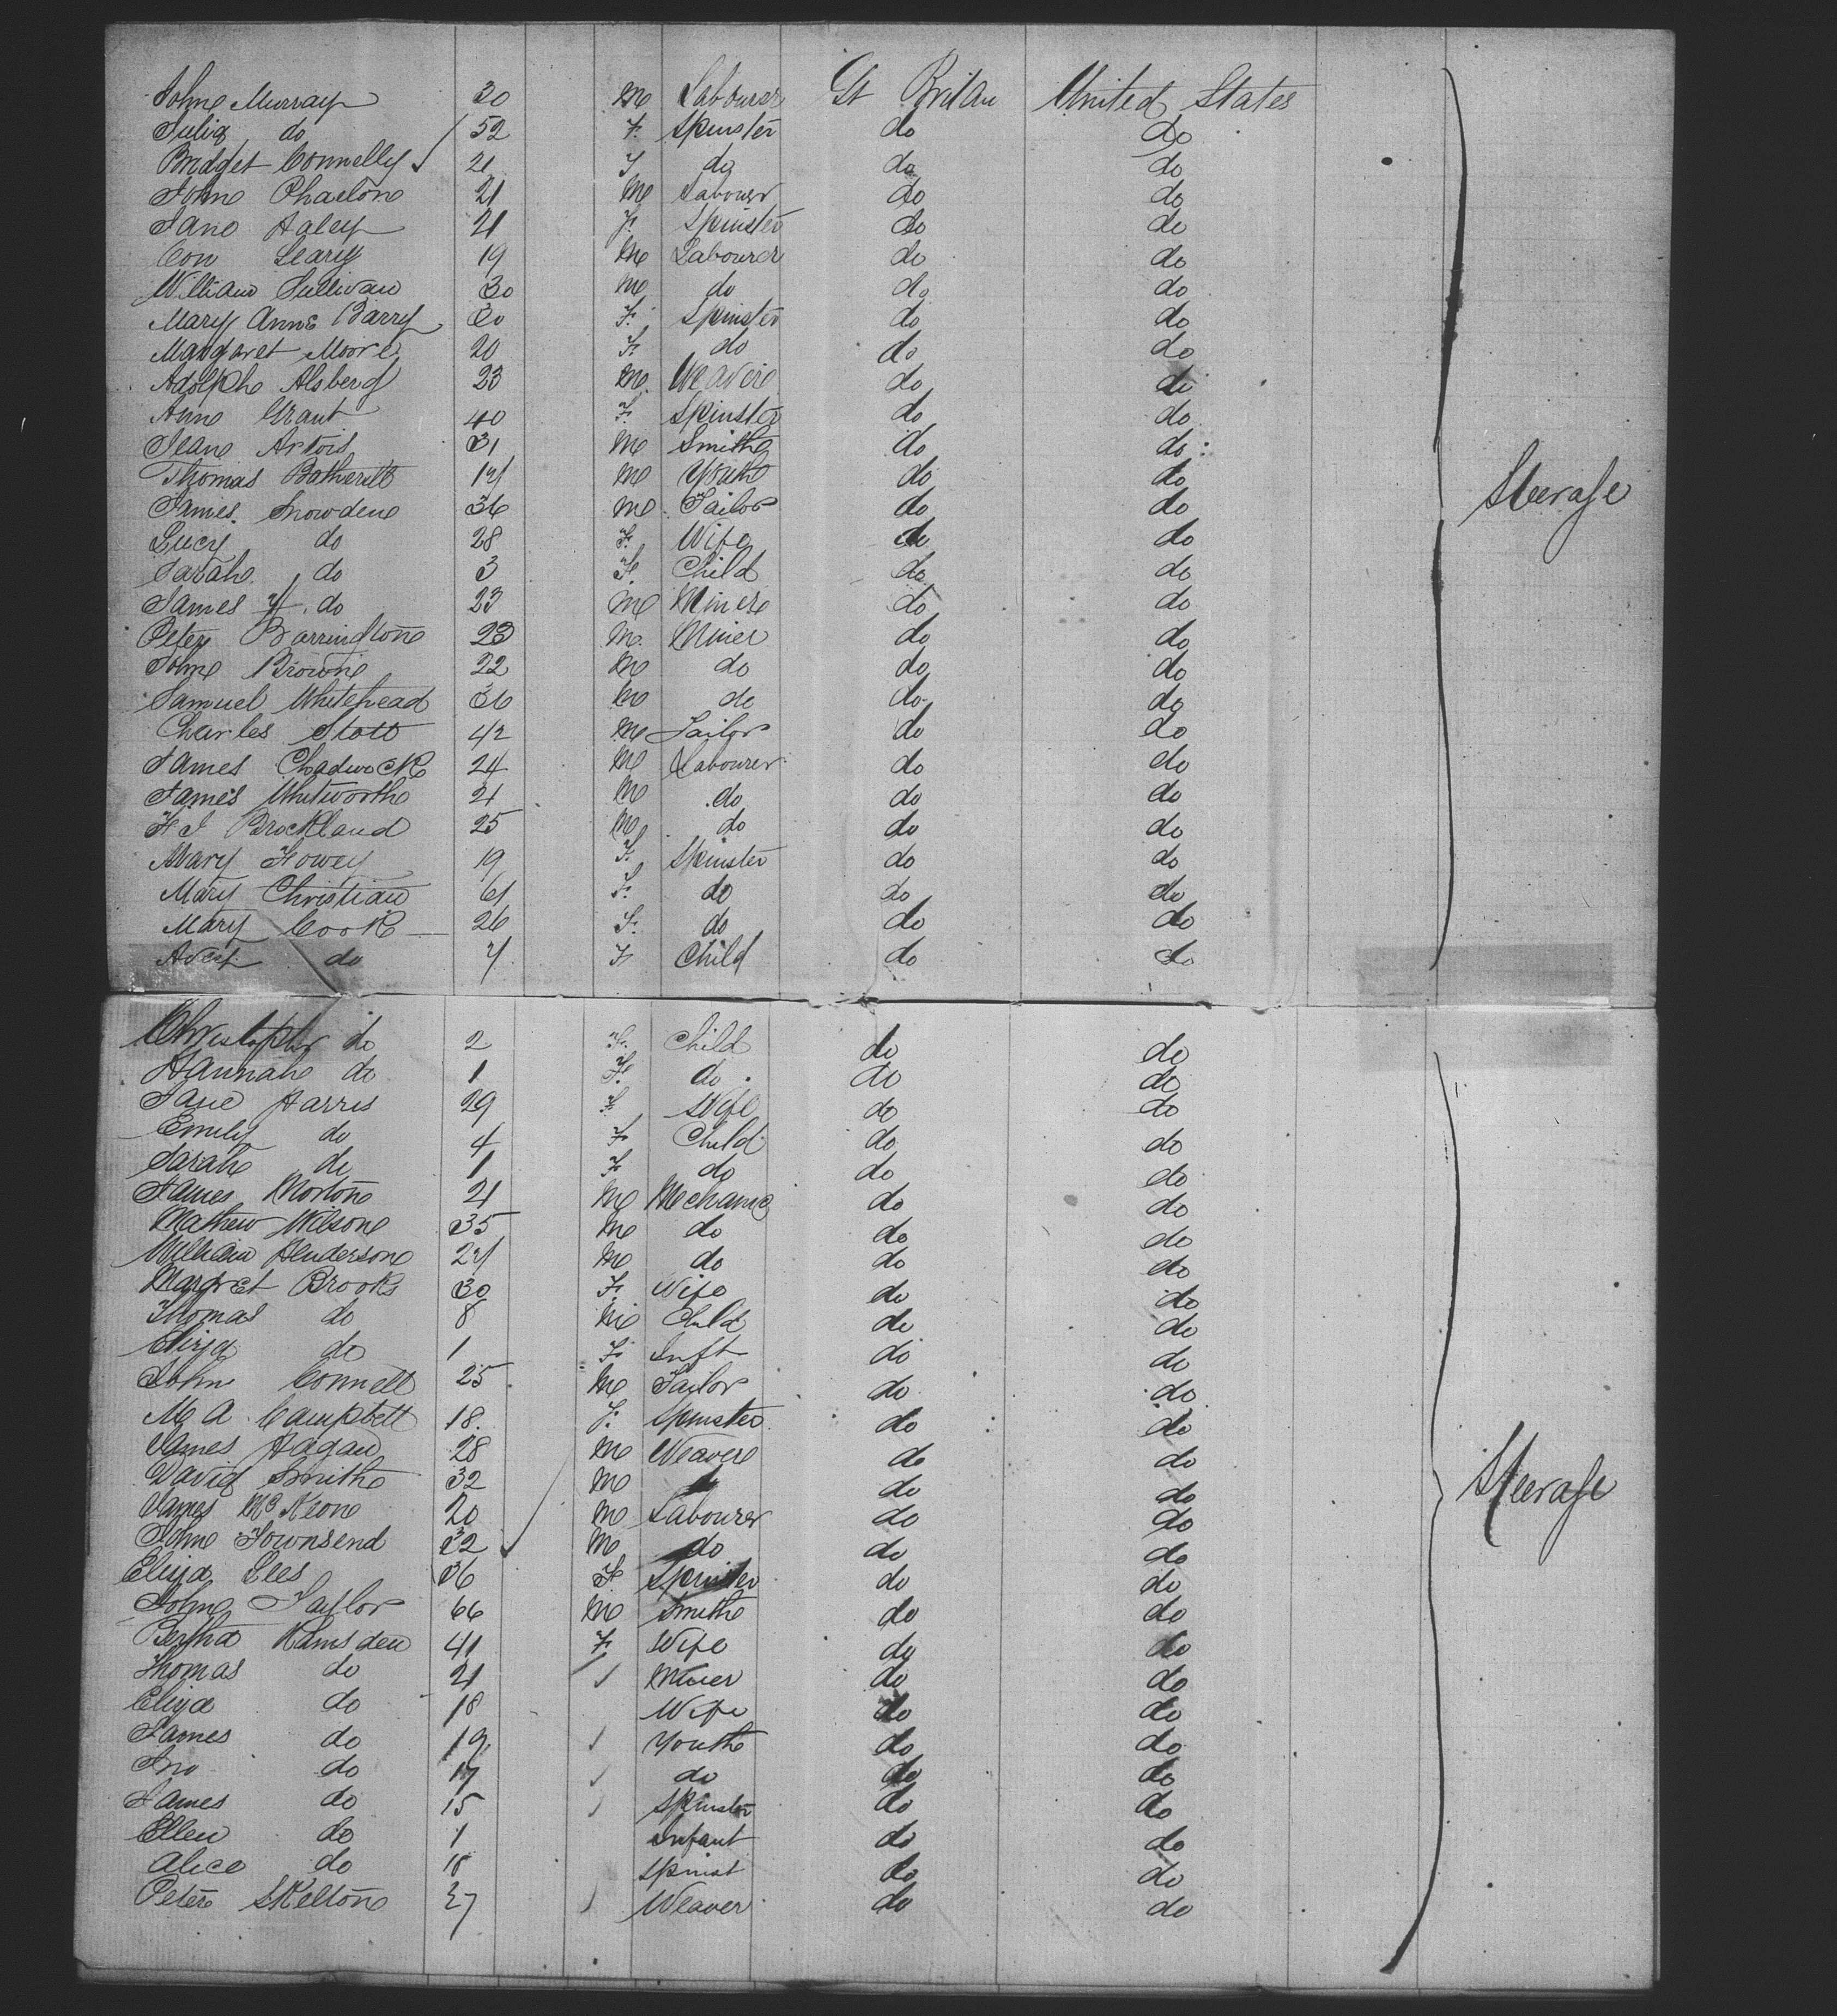 John Murray 20 M Labourer Gt Britan United States
Julia do 52 F Spinster do do
Bridget Connelly 21 F do do do
John Charlton 21 M Labourer do do
Jane Haley 21 F Spinster do do
Con Leary 19 M Labourer do do
William Sullivan 30 M do do do
Mary Anne Barry 20 F Spinster do do
Margaret Moore 20 F do do do
Adolphe Alsberg 23 M Weaver do do
Anne Grant 40 F Spinster do do
Jean Artois 31 M Smith do do
Thomas 17 M Youth do do
Steerage
James Snowden 36 M Tailor do do
Lucy do 28 F Wife do do
Sarah do 3 F Child do do
James H do 23 M Miner do do
Peter Barrington 23 M Miner do do
John Brown 22 M do do do
Samuel Whitehead 36 M do do do
Charles Stott 42 M Tailor do do
James Chadwick 24 M Labourer do do
James Whitworth 21 M do do do
Brockland 25 M do do do
Mary 19 F Spinster do do
Mary Christian 61 F do do do
Mary Cook 26 F do do do
do 7 F Child do do
Christopher do 2 F Child do do
Hannah do 1 F do do do
Jane Harris 29 F Wife do do
Emily do 4 F Child do do
Sarah do 1 F do do do
James Morton 21 M Mechanic do do
Mathew Wilson 35 M do do do
William Henderson 27 M do do do
Margret Brooks 30 F Wife do do
Thomas do 8 M Child do do
Eliza do 1 F Inft do do
John Connell 25 M Tailor do do
M A Campbell 18 F Spinster do do
James Hagan 28 M Weaver do do
David Smith 32 M do do
Steerage
James McKeon 20 M Labourer do do
John Townsend 32 M do do do
Eliza Lees 36 F Spinster do do
John Taylor 66 M Smith do do
Bertha Ramsden 41 F Wife do do
Thomas do 21 Miner do do
Eliza do 18 Wife do do
James do 19 Youth do do
Jno do 17 do do do
James do 15 Spinster do do
Ellen do 1 Infant do do
Alice do 18 Spinst do do
Peter Skelton 27 Weaver do do